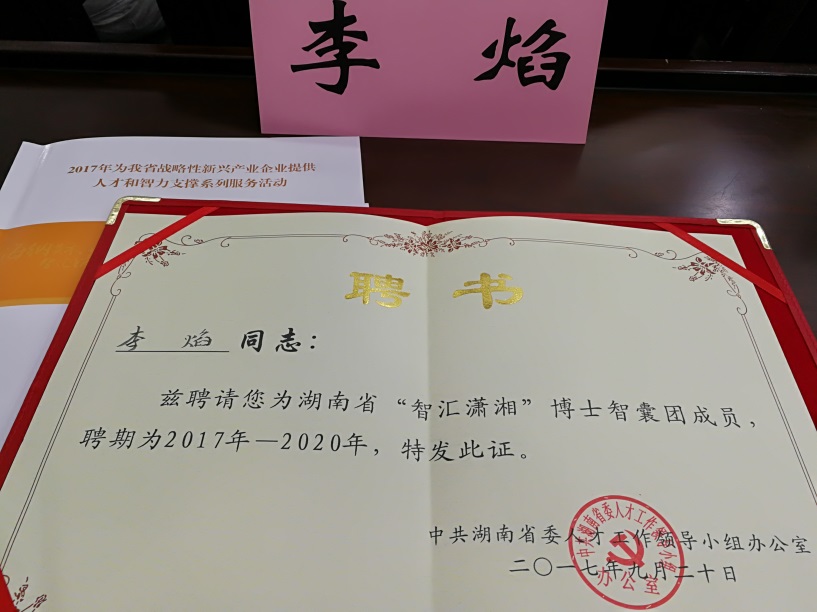 李 焰
2017年为我省战略性新兴产业企业提供
人才和智力支撑系列服务活动
聘书
李 焰 同志：
兹聘请您为湖南省“智汇潇湘”博士智囊团成员，
聘期为2017年—2020年，特发此证。
中共湖南省委人才工作领导小组办公室
二〇一七年九月二十日
中共湖南省委人才工作领导小组
办公室